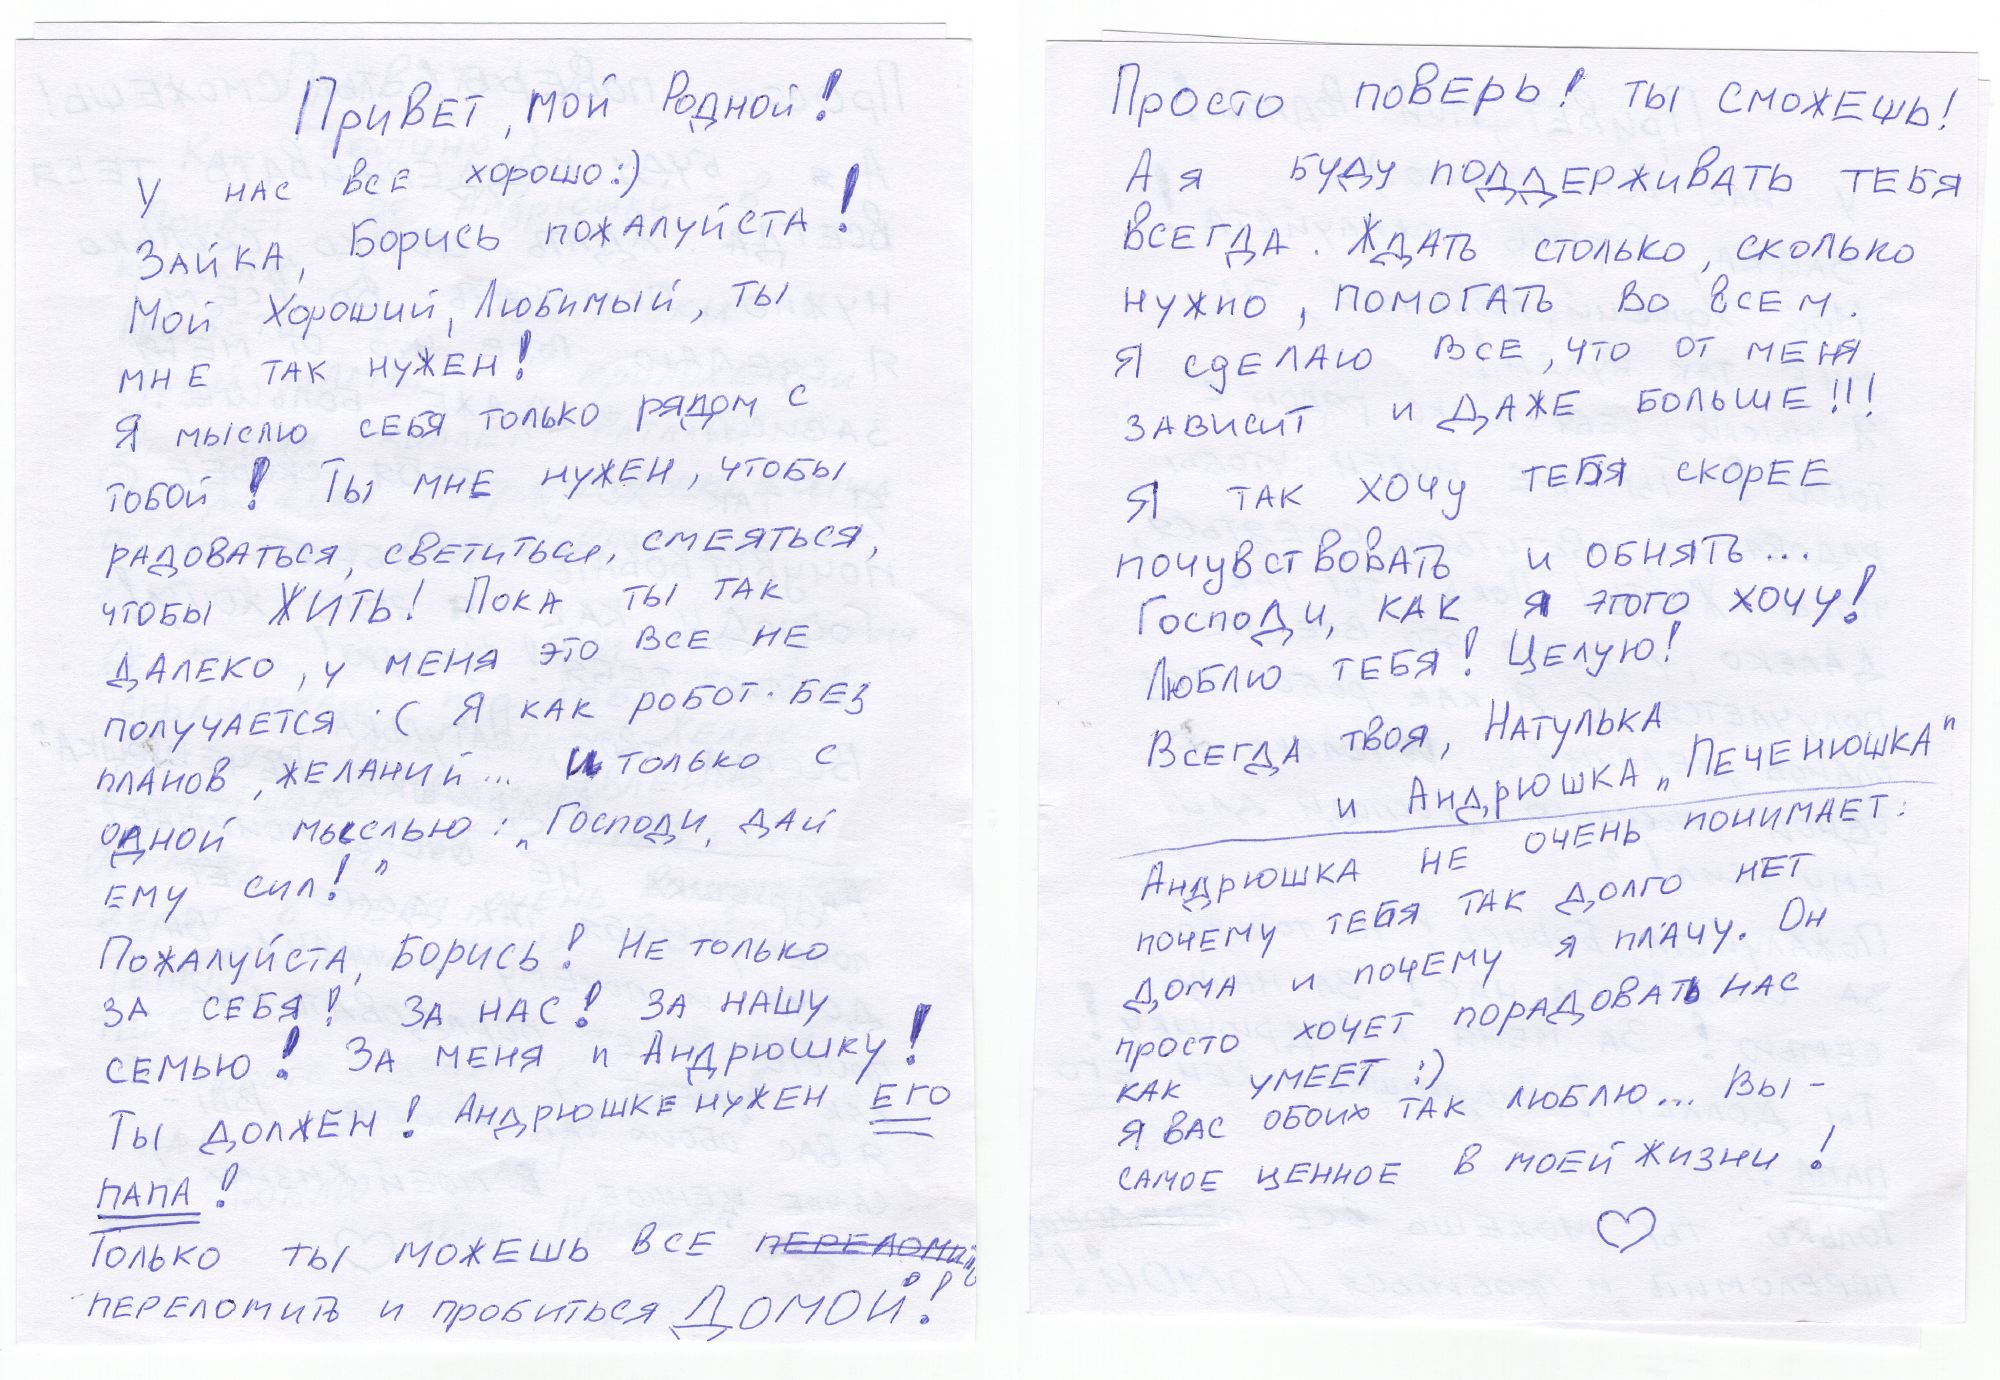 Привет, мой Родной!
У нас все хорошо:)
Зайка, Борись пожалуйста!
Мой Хороший, Любимый, ты
мне так нужен!
Я мыслю себя только рядом с
тобой! Ты мне нужен, чтобы
радоваться, светиться, смеяться,
чтобы ЖИТЬ! Пока ты так
далеко, у меня это все не
получается :( Я как робот. Без
планов, желаний... и только с
одной мыслью: „Господи, дай
ему сил!"
Пожалуйста, Борись! Не только
за себя! За нас! За нашу
семью! За меня и Андрюшку!
Ты должен! Андрюшке нужен его
папа!
Только ты можешь все переломить
переломить и пробиться ДОМОЙ!
Просто поверь! Ты сможешь!
А я буду поддерживать тебя
всегда. Ждать столько, сколько
нужно, помогать во всем.
Я сделаю все, что от меня
зависит и даже больше!!!
Я так хочу тебя скорее
почувствовать и обнять...
Господи, как я этого хочу!
Люблю тебя! Целую!
Всегда твоя, Натулька
и Андрюшка „Печенюшка"
Андрюшка не очень понимает:
почему тебя так долго нет
дома и почему я плачу. Он
просто хочет порадовать нас
как умеет :)
Я вас обоих так люблю... Вы -
самое ценное в моей жизни!